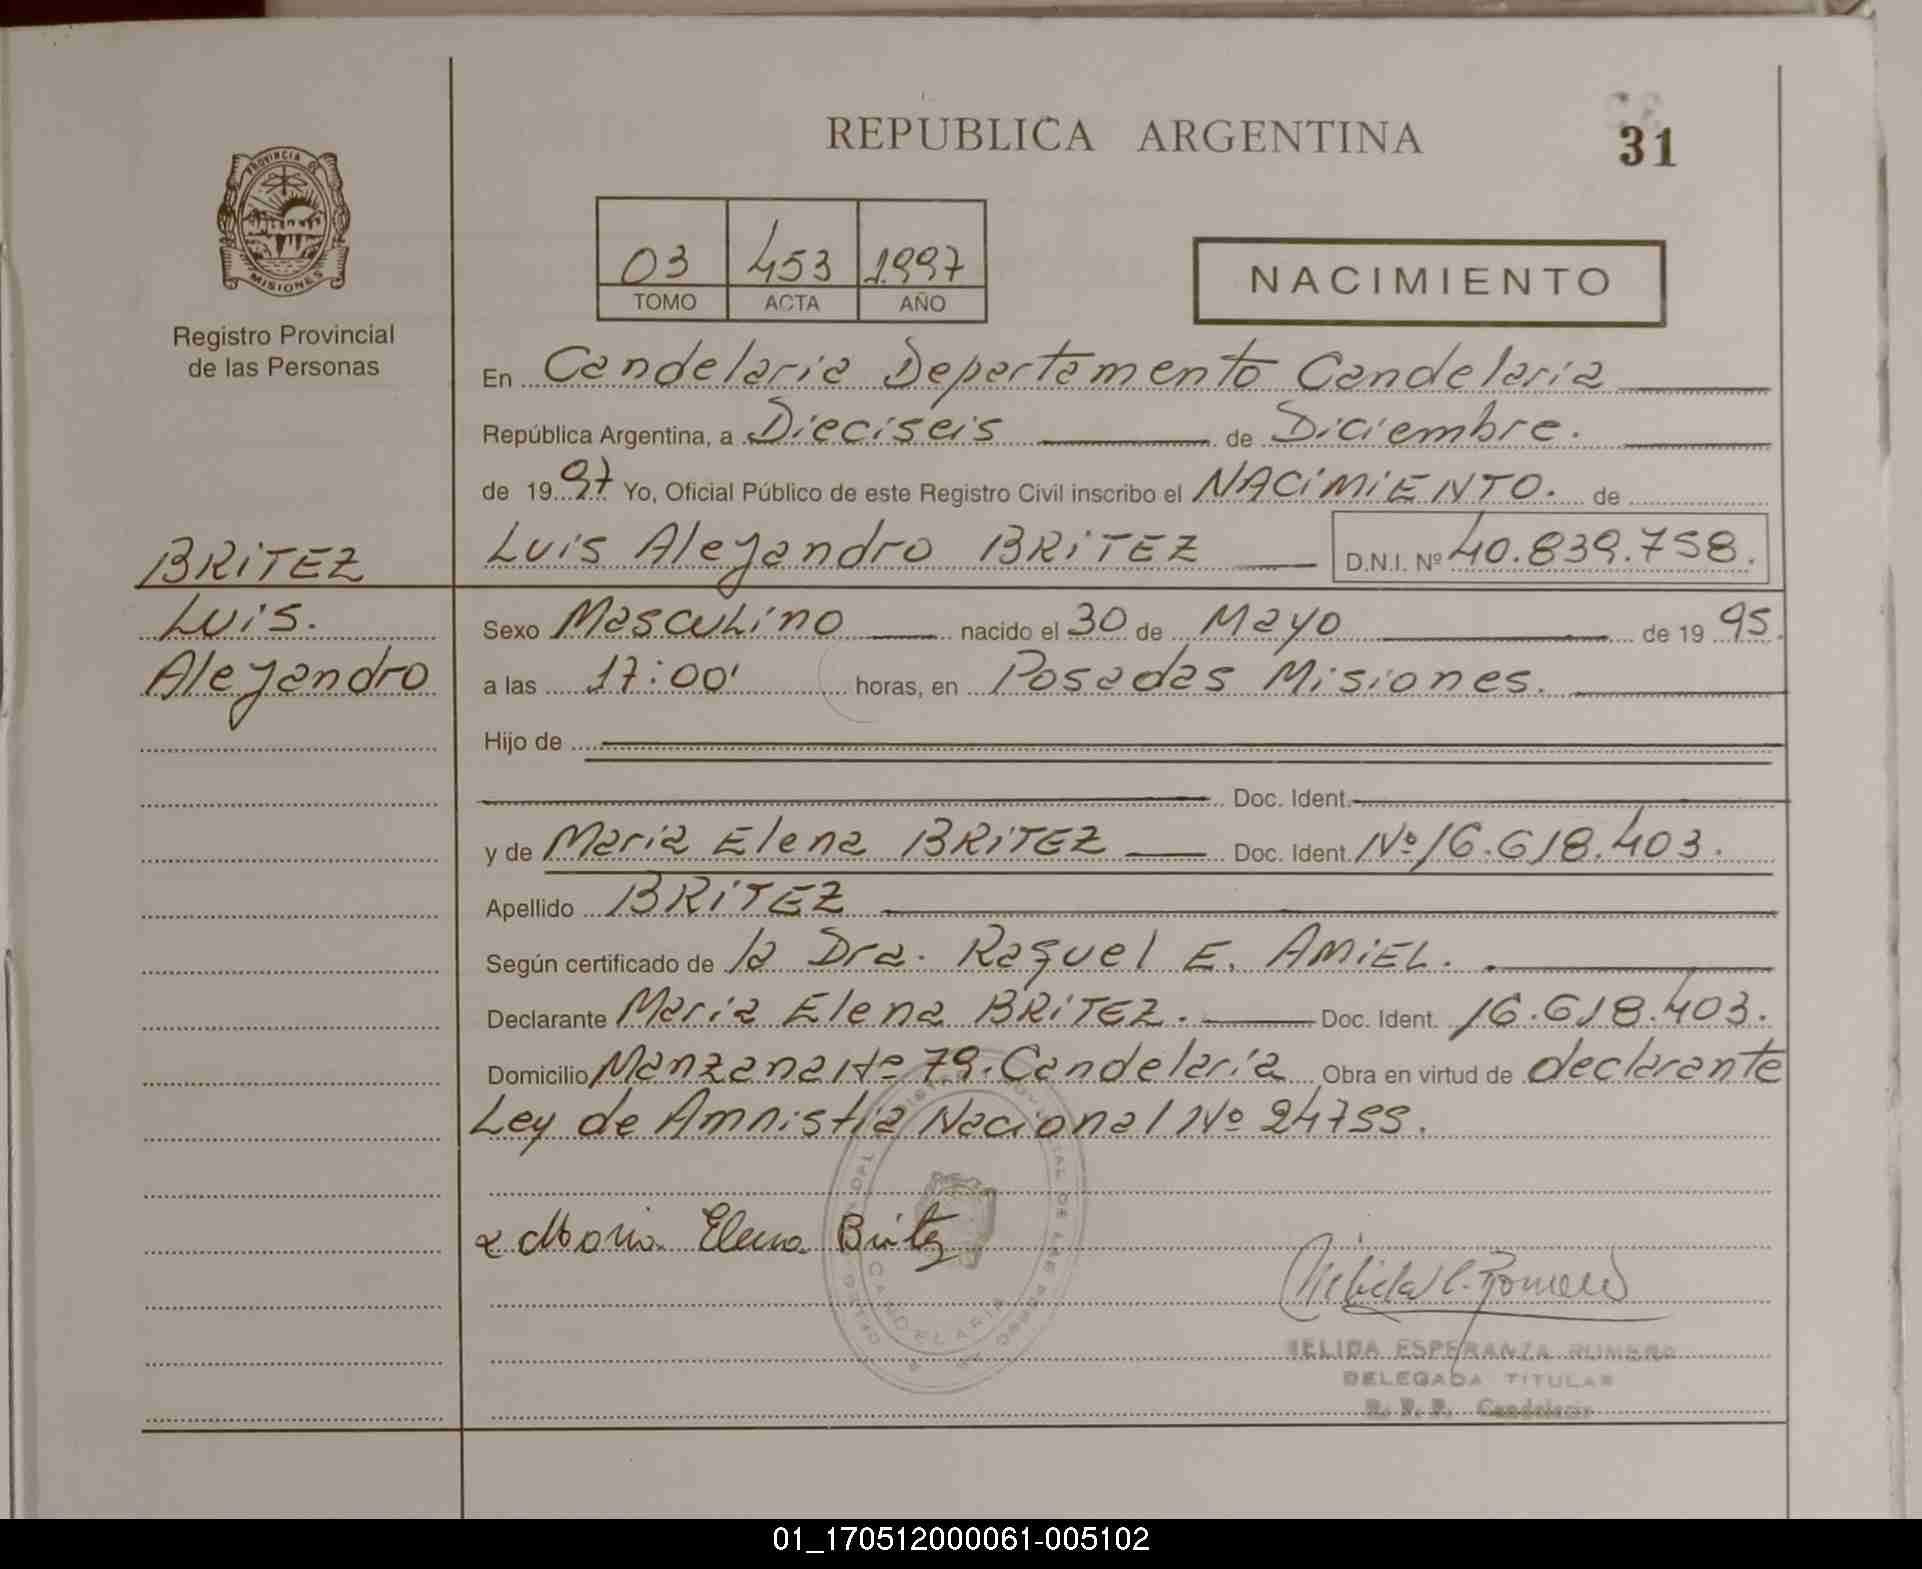 REPUBLICA ARGENTINA
31
PROVINCIA DE
MISIONES
Registro Provincial
de las Personas
03 453 1997
TOMO ACTA AÑO
NACIMIENTO
En Candelaria Departamento Candelaria
República Argentina, a Dieciseis de Diciembre.
de 1997 Yo, Oficial Público de este Registro Civil inscribo el NACIMIENTO. de
Luis Alejandro BRITEZ D.N.I. Nº 40.839.758.
BRITEZ
Luis.
Alejandro
Sexo Masculino nacido el 30 de Mayo de 1995.
a las 17:00' horas, en Posadas Misiones.
Hijo de
Doc. Ident.
y de Maria Elena BRITEZ Doc. Ident. Nº 16.618.403.
Apellido BRITEZ
Según certificado de la Dra. Raquel E. AMIEL.
Declarante Maria Elena BRITEZ. Doc. Ident. 16.618.403.
Domicilio Manzana Nº 79. Candelaria Obra en virtud de declarante
Ley de Amnistia Nacional Nº 24755.
Maria Elena Britez
CANDELARIA
NELIDA ESPERANZA ROMERO
DELEGADA TITULAR
R. P. P. Candelaria
01_170512000061-005102